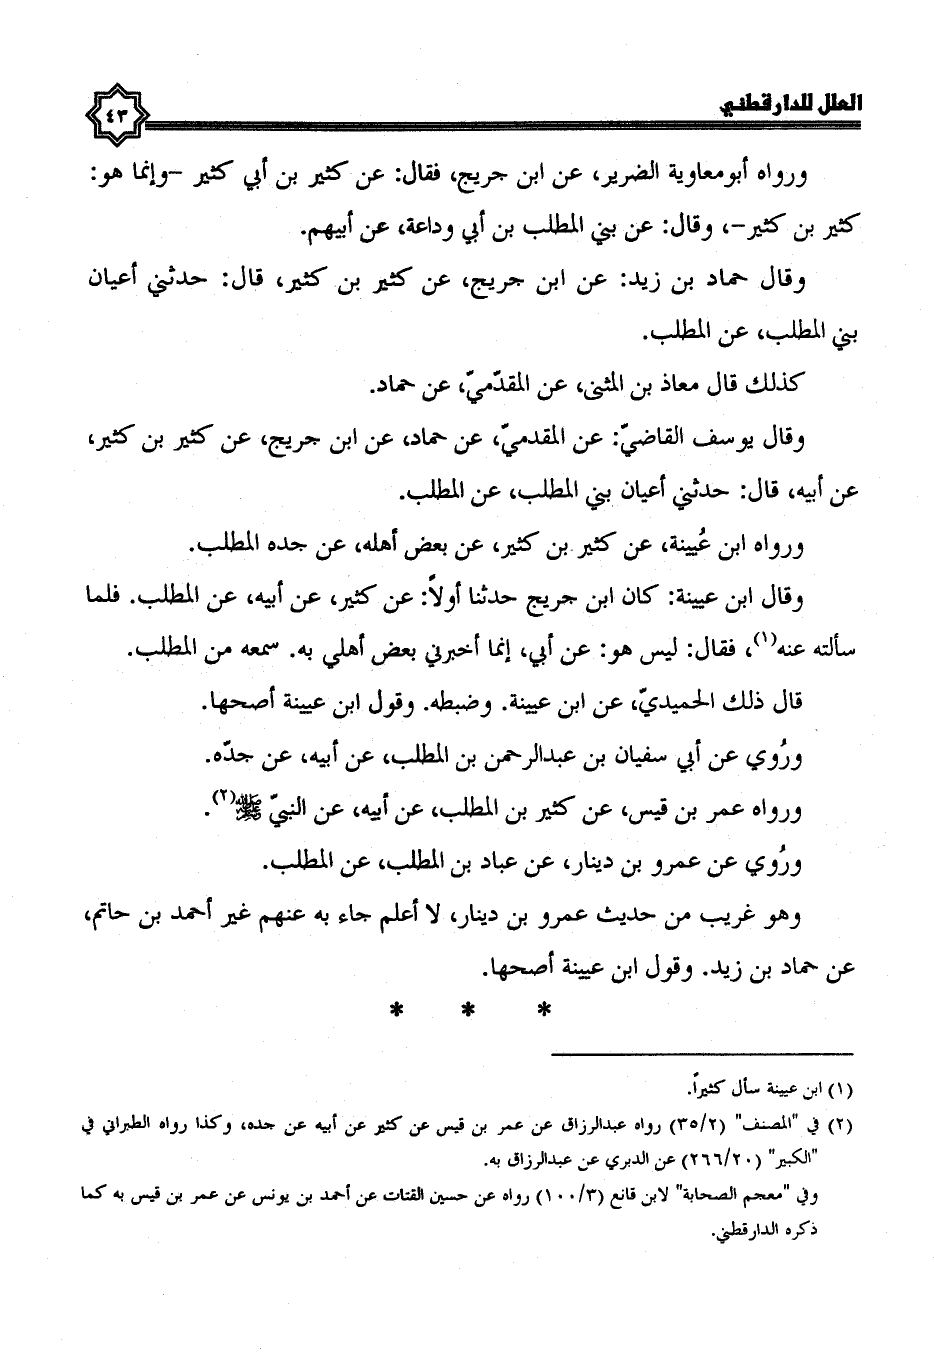 العلل للدارقطني
٤٣
ورواه أبومعاوية الضرير، عن ابن جريج، فقال: عن كثير بن أبي كثير –وإنما هو:
كثير بن كثير–، وقال: عن بني المطلب بن أبي وداعة، عن أبيهم.
وقال حماد بن زيد: عن ابن جريج، عن كثير بن كثير، قال: حدثني أعيان
بني المطلب، عن المطلب.
كذلك قال معاذ بن المثنى، عن المقدّميّ، عن حماد.
وقال يوسف القاضيّ: عن المقدميّ، عن حماد، عن ابن جريج، عن كثير بن كثير،
عن أبيه، قال: حدثني أعيان بني المطلب، عن المطلب.
ورواه ابن عُيينة، عن كثير بن كثير، عن بعض أهله، عن جده المطلب.
وقال ابن عيينة: كان ابن جريج حدثنا أولاً: عن كثير، عن أبيه، عن المطلب. فلما
سألته عنه(١)، فقال: ليس هو: عن أبي، إنما أخبرني بعض أهلي به. سمعه من المطلب.
قال ذلك الحميديّ، عن ابن عيينة. وضبطه. وقول ابن عيينة أصحها.
ورُوي عن أبي سفيان بن عبدالرحمن بن المطلب، عن أبيه، عن جدّه.
ورواه عمر بن قيس، عن كثير بن المطلب، عن أبيه، عن النبيّ ﷺ(٢).
ورُوي عن عمرو بن دينار، عن عباد بن المطلب، عن المطلب.
وهو غريب من حديث عمرو بن دينار، لا أعلم جاء به عنهم غير أحمد بن حاتم،
عن حماد بن زيد. وقول ابن عيينة أصحها.
* * *
(١) ابن عيينة سأل كثيراً.
(٢) في "المصنف" (٣٥/٢) رواه عبدالرزاق عن عمر بن قيس عن كثير عن أبيه عن جده، وكذا رواه الطبراني في
"الكبير" (٢٦٦/٢٠) عن الدبري عن عبدالرزاق به.
وفي "معجم الصحابة" لابن قانع (١٠٠/٣) رواه عن حسين القتات عن أحمد بن يونس عن عمر بن قيس به كما
ذكره الدارقطني.